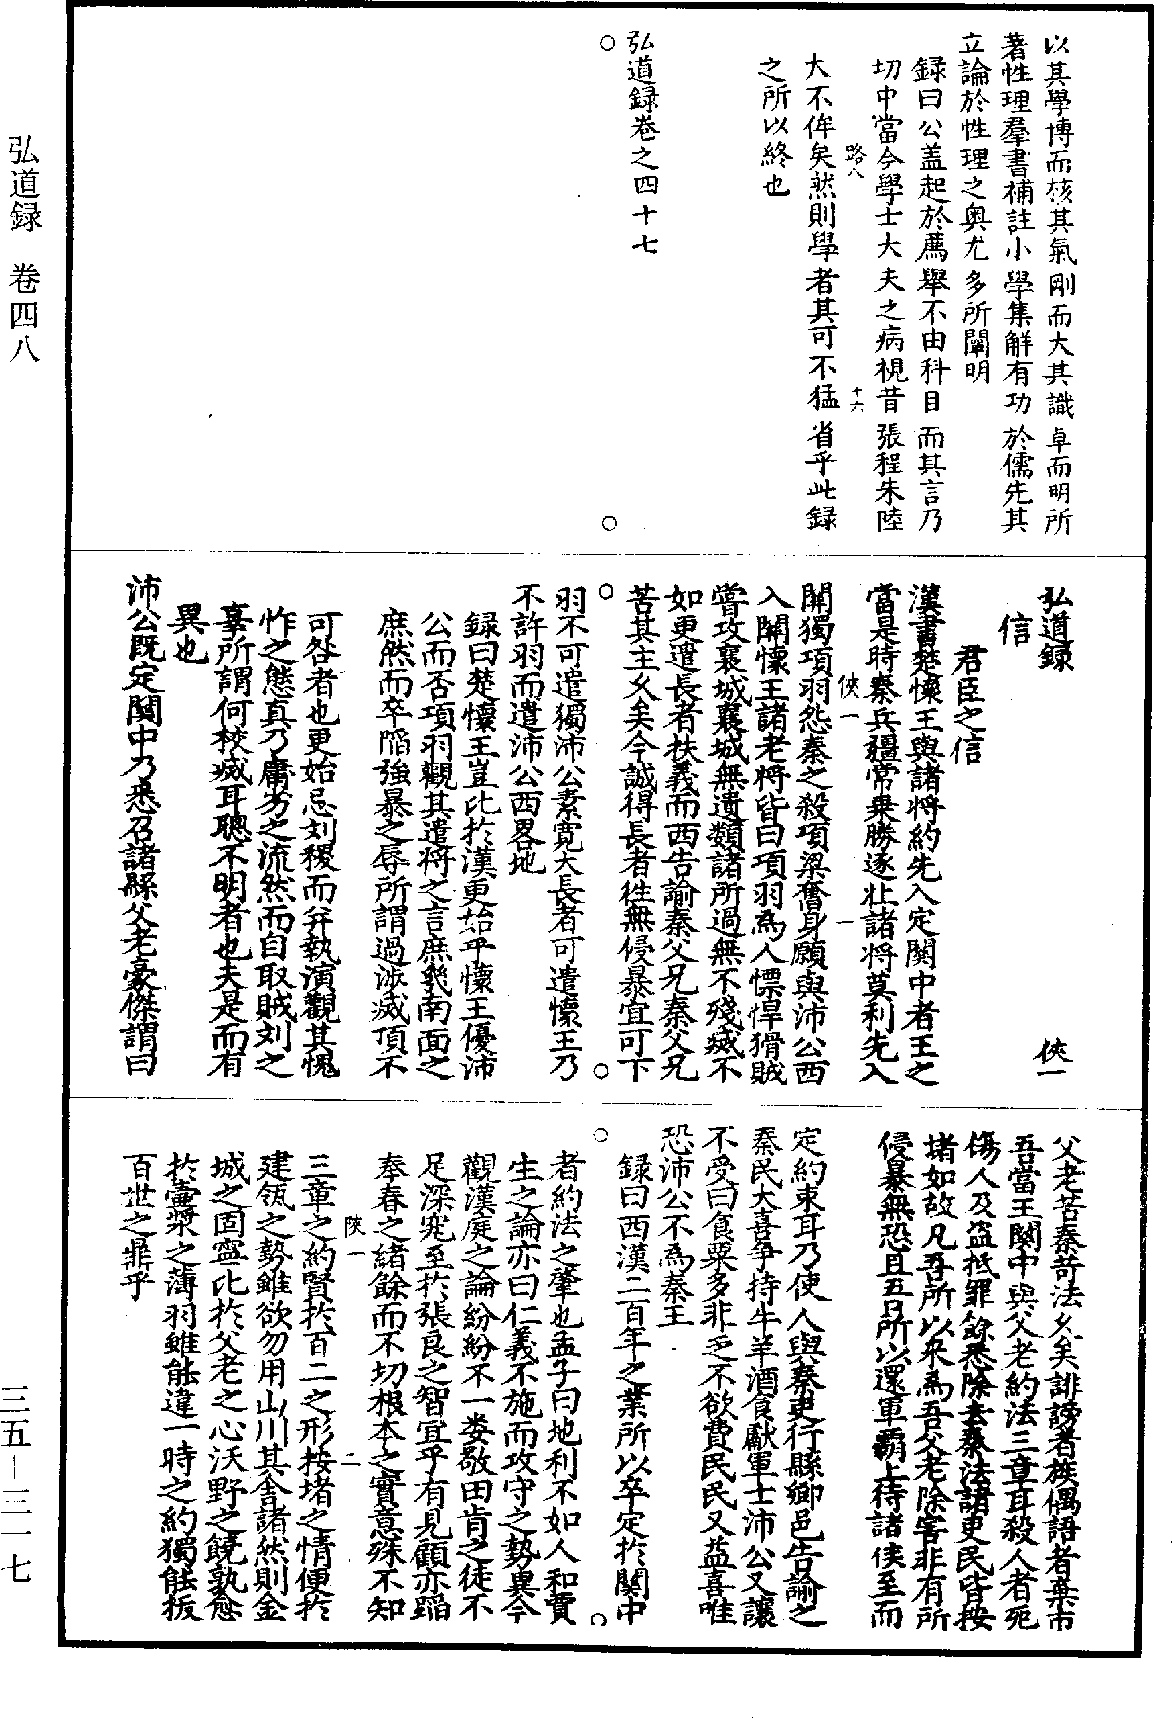 弘道録　卷四八
以其學博而核其氣剛而大其識卓而明所
著性理羣書補註小學集解有功於儒先其
立論於性理之奥尤多所闡明
録曰公蓋起於薦舉不由科目而其言乃
切中當今學士大夫之病視昔張程朱陸
路八
十六
大不侔矣然則學者其可不猛省乎此録
之所以終也
弘道録卷之四十七
弘道録
俠一
信
君臣之信
漢書楚懷王與諸將約先入定關中者王之
當是時秦兵彊常乗勝逐北諸将莫利先入
俠一
一
關獨項羽怨秦之殺項梁奮身願與沛公西
入關懷王諸老将皆曰項羽為人慓悍猾賊
嘗攻襄城襄城無遺類諸所過無不殘滅不
如更遣長者扶義而西告諭秦父兄秦父兄
苦其主乆矣今誠得長者徃無侵暴宜可下
羽不可遣獨沛公素寛大長者可遣懷王乃
不許羽而遣沛公西畧地
録曰楚懷王豈比扵漢更始乎懷王優沛
公而否項羽觀其遣将之言庶幾南面之
庶然而卒陷強暴之辱所謂過涉滅頂不
可咎者也更始忌刘稷而并執演觀其愧
怍之態真乃庸劣之流然而自取賊刘之
辜所謂何校滅耳聰不明者也夫是而有
異也
沛公既定關中乃悉召諸縣父老豪傑謂曰
父老苦秦苛法乆矣誹謗者族偶語者棄市
吾當王關中與父老約法三章耳殺人者死
傷人及盗抵罪餘悉除去秦法諸吏民皆按
堵如故凡吾所以来為吾父老除害非有所
侵暴無恐且吾所以還軍霸上待諸侯至而
定約束耳乃使人與秦吏行縣鄉邑告諭之
秦民大喜爭持牛羊酒食獻軍士沛公又讓
不受曰食粟多非乏不欲費民民又益喜唯
恐沛公不為秦王
録曰西漢二百年之業所以卒定扵關中
者約法之肇也孟子曰地利不如人和賈
生之論亦曰仁義不施而攻守之勢異今
觀漢庭之論紛紛不一婁敬田肯之徒不
足深究至扵張良之智宜乎有見顧亦蹈
奉春之緒餘而不切根本之實意殊不知
俠一
二
三章之約賢扵百二之形按堵之情便扵
建瓴之勢雖欲勿用山川其舍諸然則金
城之固寧比扵父老之心沃野之饒孰愈
扵壷漿之薄羽雖能違一時之約獨能扳
百世之鼎乎
三五—三一七